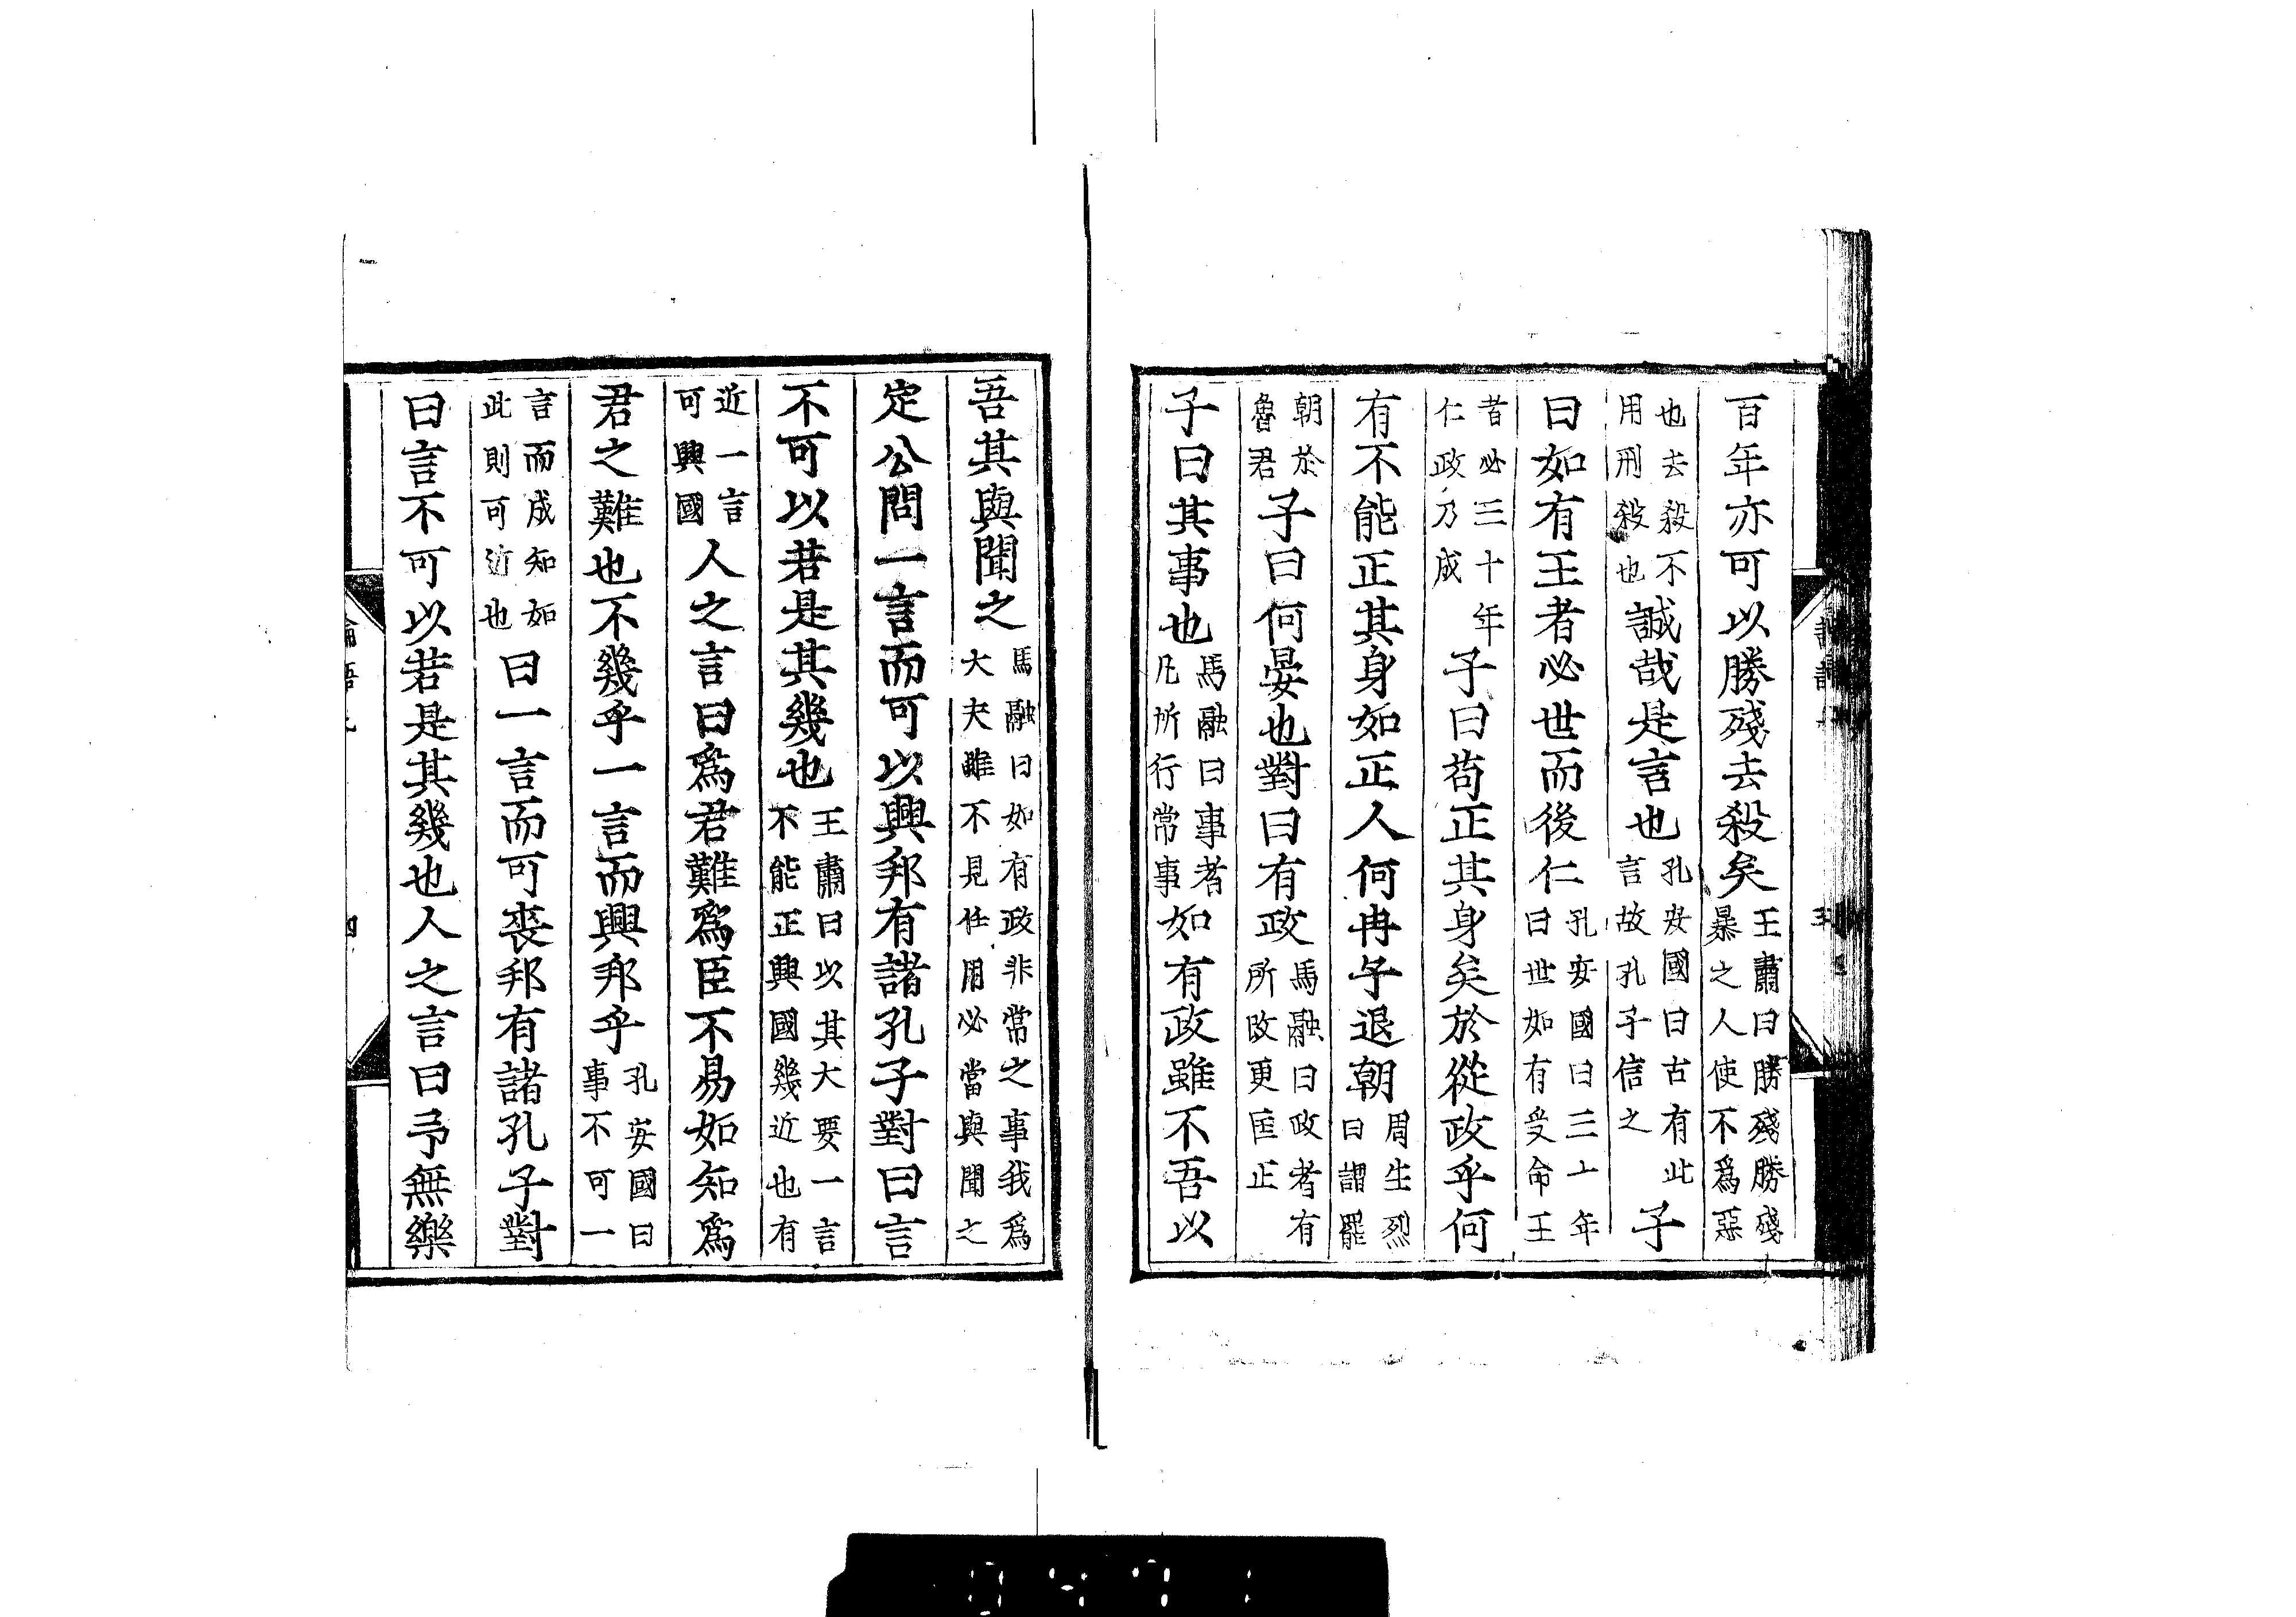 百年亦可以勝殘去殺矣王肅曰勝殘勝殘暴之人使不爲惡
也去殺不用刑殺也誠哉是言也孔安國曰古有此言故孔子信之子
曰如有王者必世而後仁孔安國曰三十年曰世如有受命王
者必三十年仁政乃成子曰苟正其身矣於從政乎何
有不能正其身如正人何冉子退朝周生烈曰謂罷
朝於魯君子曰何晏也對曰有政馬融曰政者有所改更匡正
子曰其事也馬融曰事者凡所行常事如有政雖不吾以
吾其與聞之馬融曰如有政非常之事我爲大夫雖不見任用必當與聞之
定公問一言而可以興邦有諸孔子對曰言
不可以若是其幾也王肅曰以其大要一言不能正興國幾近也有
近一言可興國人之言曰爲君難爲臣不易如知爲
君之難也不幾乎一言而興邦乎孔安國曰事不可一
言而成知如此則可近也曰一言而可喪邦有諸孔子對
曰言不可以若是其幾也人之言曰予無樂